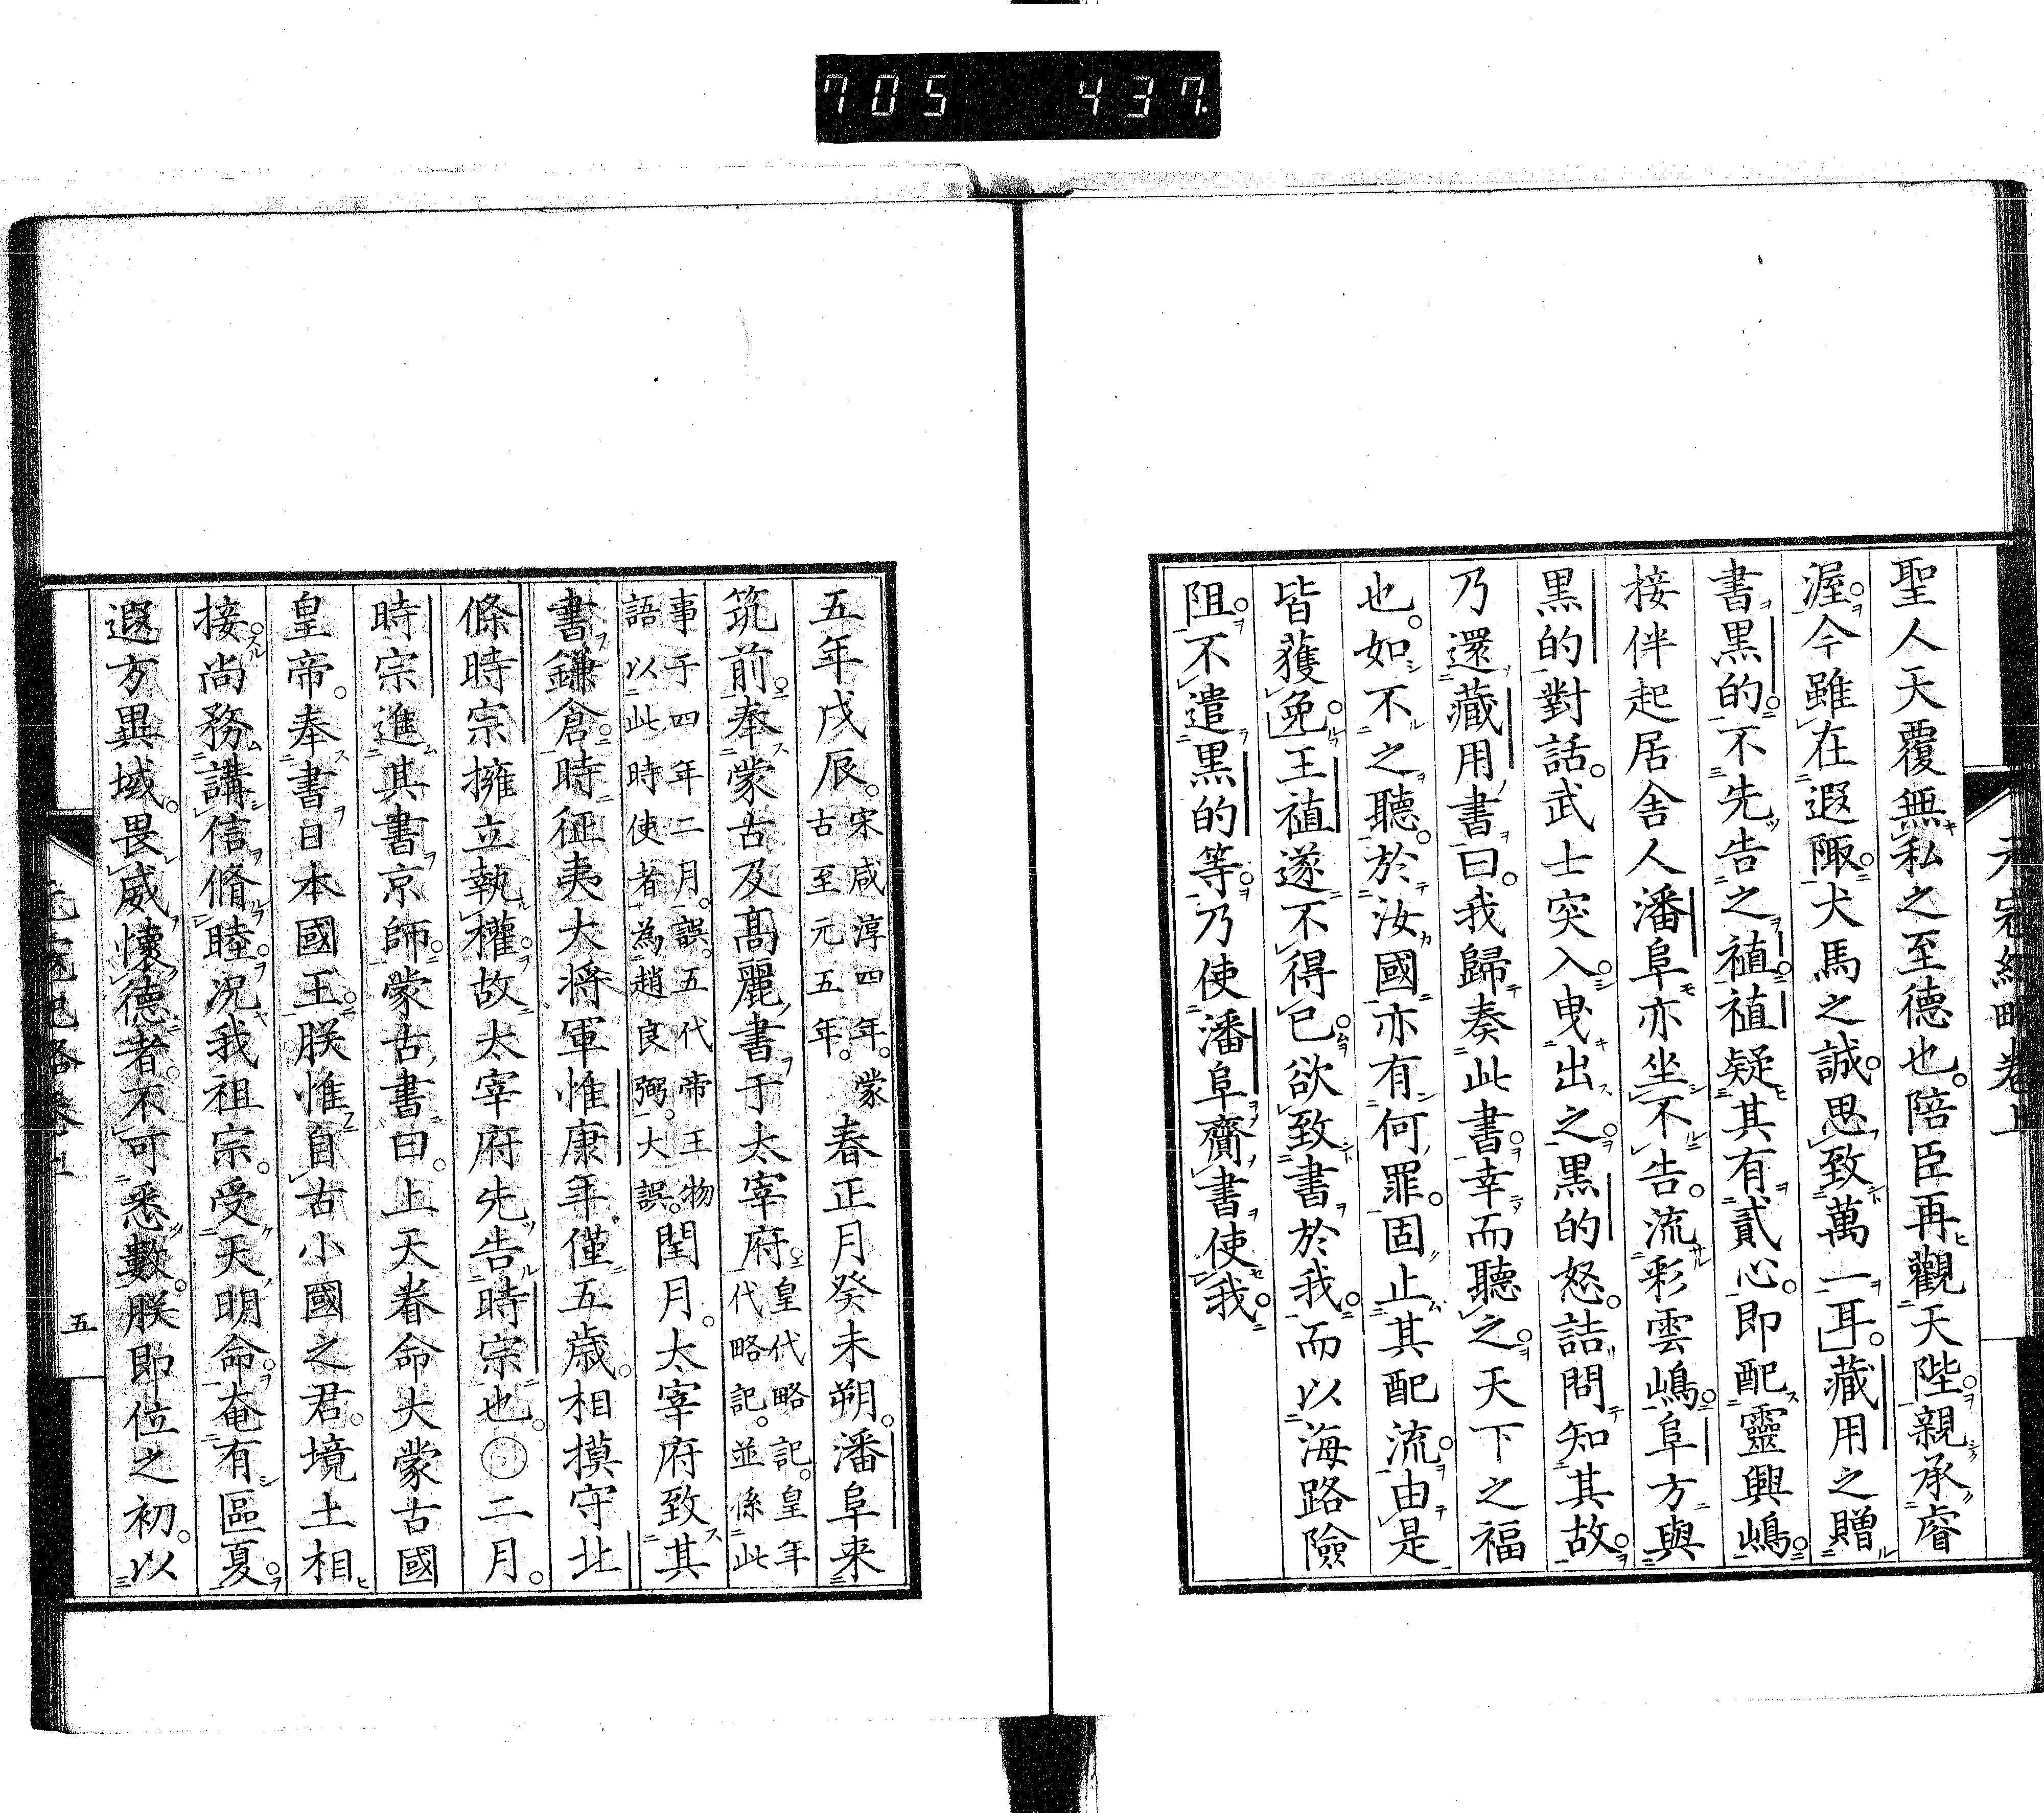 705 437
元寇紀略卷上
聖人天覆無私之至德也。陪臣再觀天陛親承睿
渥。今雖在遐陬。犬馬之誠。思致萬一耳。藏用之贈
書黑的。不先告之禃。禃疑其有貳心。即配靈興嶋。
接伴起居舍人潘阜亦坐不告。流彩雲嶋。阜方與
黑的對話。武士突入曳出之。黑的怒。詰問知其故。
乃還藏用書曰。我歸奏此書。幸而聽之。天下之福
也。如不之聽。於汝國亦有何罪。固止其配流。由是
皆獲免。王禃遂不得已。欲致書於我。而以海路險
阻。不遣黑的等。乃使潘阜齎書使我。
五年戊辰。宋咸淳四年。蒙古至元五年。春正月癸未朔。潘阜来
筑前。奉蒙古及高麗書于太宰府。皇代略記。皇年代略記。並係此
事于四年二月。誤。五代帝王物語以此時使者為趙良弼。大誤。閏月。太宰府致其
書鎌倉。時征夷大将軍惟康年僅五歳。相摸守北
條時宗擁立執權。故太宰府先告時宗也。〇二月。
時宗進其書京師。蒙古書曰。上天眷命大蒙古國
皇帝。奉書日本國王。朕惟自古小國之君。境土相
接。尚務講信脩睦。況我祖宗。受天明命。奄有區夏。
遐方異域。畏威懷德者。不可悉數。朕即位之初。以
五